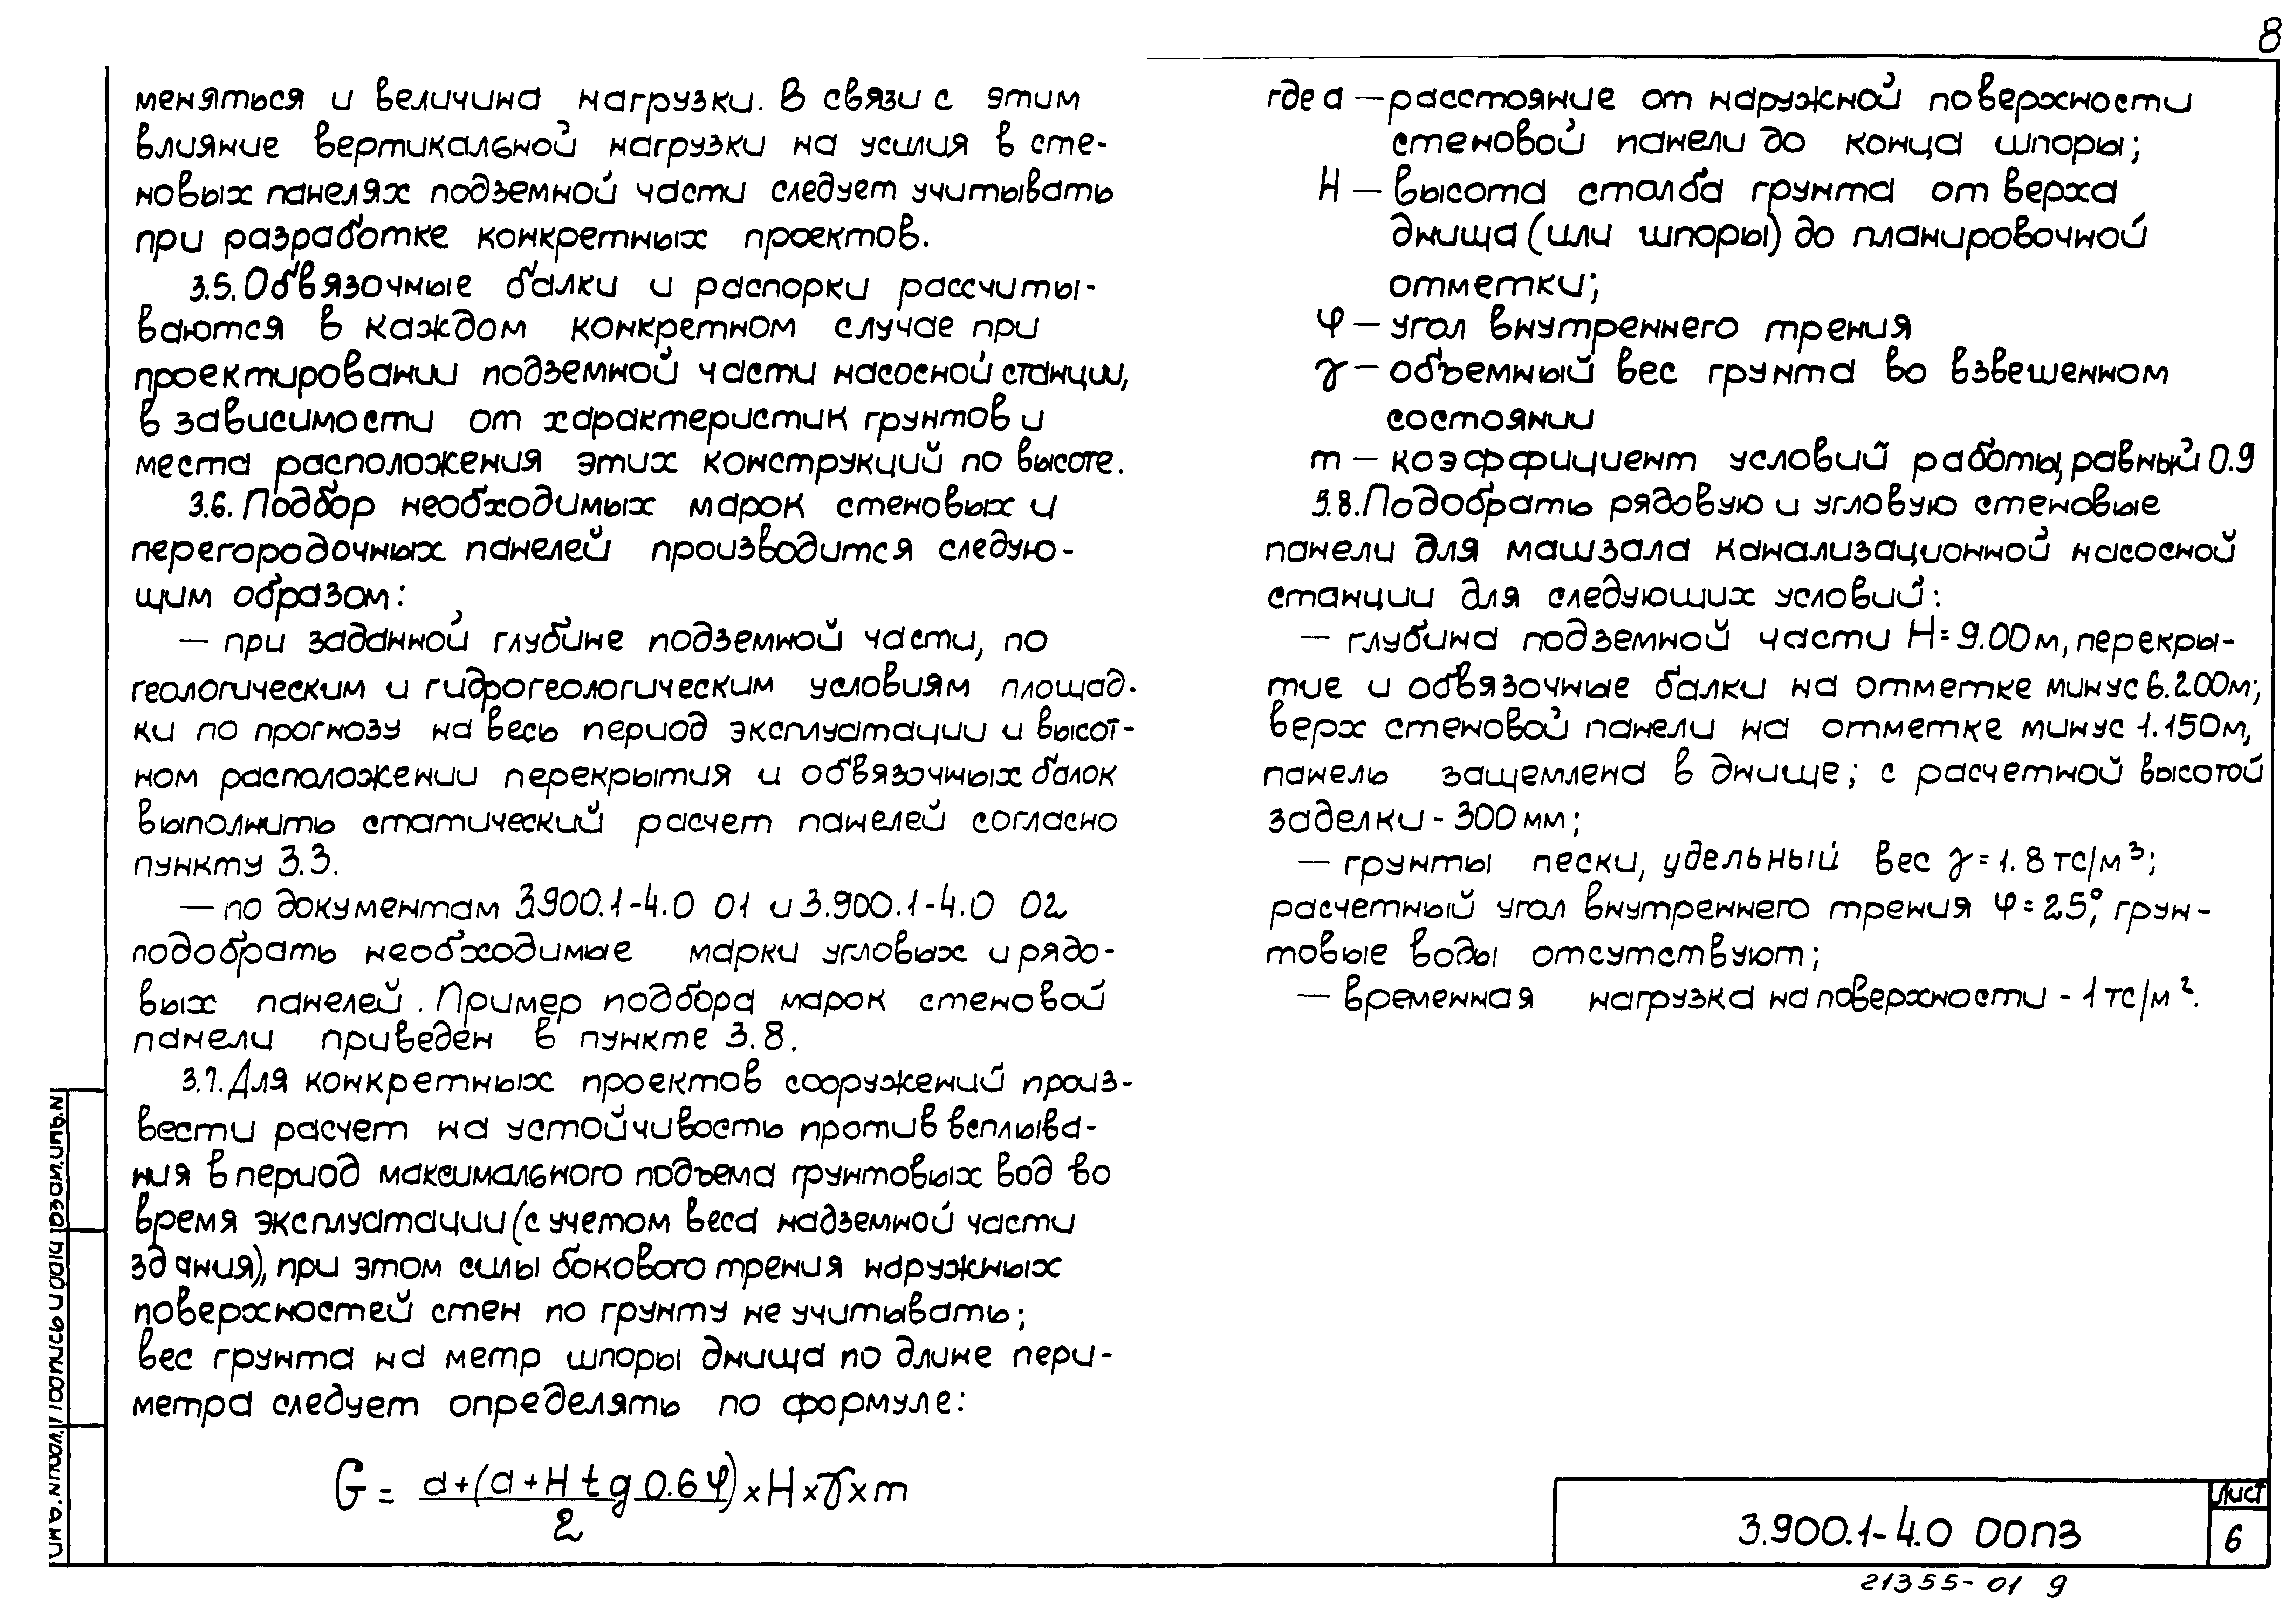 8
меняться и величина нагрузки. В связи с этим
влияние вертикальной нагрузки на усилия в сте-
новых панелях подземной части следует учитывать
при разработке конкретных проектов.
3.5. Обвязочные балки и распорки рассчиты-
ваются в каждом конкретном случае при
проектировании подземной части насосной станции,
в зависимости от характеристик грунтов и
места расположения этих конструкций по высоте.
3.6. Подбор необходимых марок стеновых и
перегородочных панелей производится следую-
щим образом:
— при заданной глубине подземной части, по
геологическим и гидрогеологическим условиям площад-
ки по прогнозу на весь период эксплуатации и высот-
ном расположении перекрытия и обвязочных балок
выполнить статический расчет панелей согласно
пункту 3.3.
— по документам 3.900.1-4.0 01 и 3.900.1-4.0 02
подобрать необходимые марки угловых и рядо-
вых панелей. Пример подбора марок стеновой
панели приведен в пункте 3.8.
3.7. Для конкретных проектов сооружений произ-
вести расчет на устойчивость против всплыва-
ния в период максимального подъема грунтовых вод во
время эксплуатации (с учетом веса надземной части
здания), при этом силы бокового трения наружных
поверхностей стен по грунту не учитывать;
вес грунта на метр шпоры днища по длине пери-
метра следует определять по формуле:
G = a+(a+H tg 0.6φ)/2 × H × γ × m
где a — расстояние от наружной поверхности
стеновой панели до конца шпоры;
H — высота столба грунта от верха
днища (или шпоры) до планировочной
отметки;
φ — угол внутреннего трения
γ — объемный вес грунта во взвешенном
состоянии
m — коэффициент условий работы, равный 0.9
3.8. Подобрать рядовую и угловую стеновые
панели для машзала канализационной насосной
станции для следующих условий:
— глубина подземной части H = 9.00 м, перекры-
тие и обвязочные балки на отметке минус 6.200 м;
верх стеновой панели на отметке минус 1.150 м,
панель защемлена в днище; с расчетной высотой
заделки - 300 мм;
— грунты пески, удельный вес γ = 1.8 тс/м³;
расчетный угол внутреннего трения φ = 25°, грун-
товые воды отсутствуют;
— временная нагрузка на поверхности - 1 тс/м².
Инв. № подл. Подпись и дата Взам. инв. №
3.900.1-4.0 00ПЗ
Лист
6
21355-01 9